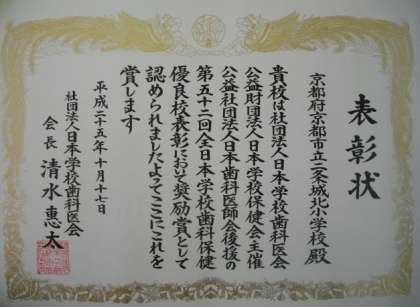 表彰状
京都府京都市立二条城北小学校 殿
貴校は社団法人日本学校歯科医会
公益財団法人日本学校保健会主催
公益社団法人日本歯科医師会後援の
第五十二回全日本学校歯科保健
優良校表彰において奨励賞として
認められましたよってここにこれを
賞します
平成二十五年十月十七日
社団法人日本学校歯科医会
会長 清水惠太